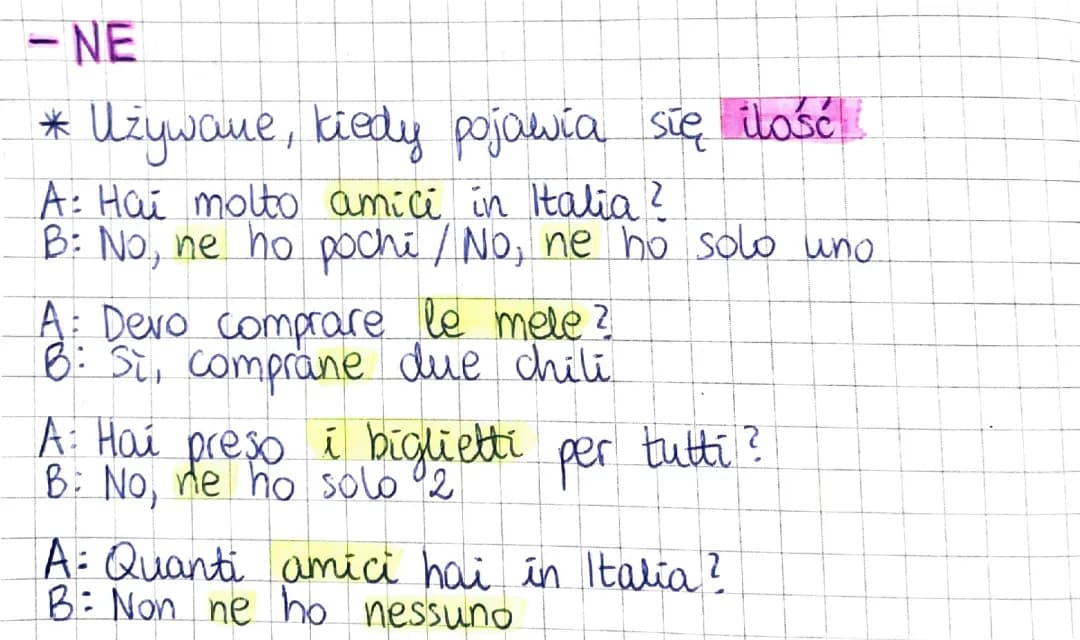 - NE
* Używane, kiedy pojawia się ilość
A: Hai molto amici in Italia?
B: No, ne ho pochi / No, ne ho solo uno
A: Devo comprare le mele?
B: Sì, comprane due chili
A: Hai preso i biglietti per tutti?
B: No, ne ho solo 2
A: Quanti amici hai in Italia?
B: Non ne ho nessuno